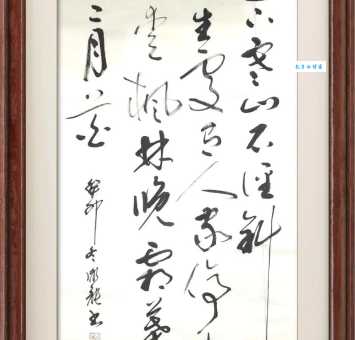 上寒山石径斜
生处有人家停
坐爱枫林晚霜葉
二月花
癸卯冬